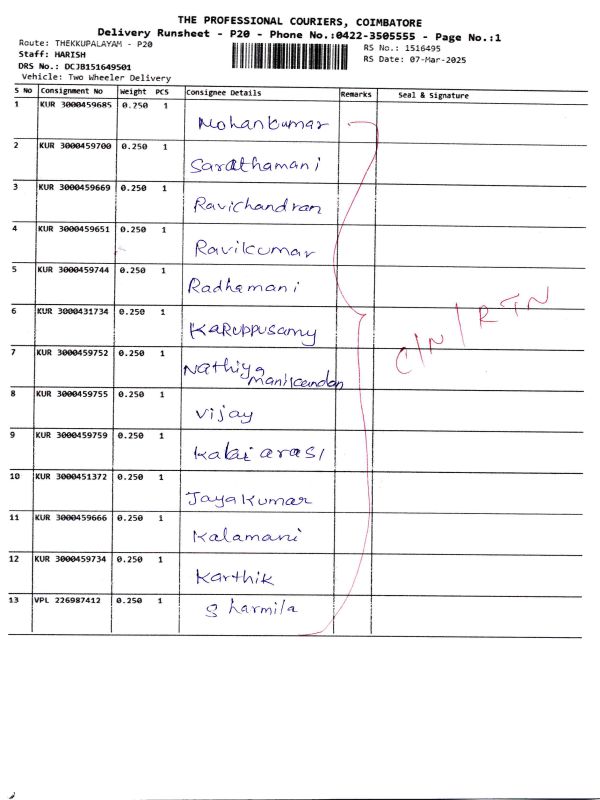 THE PROFESSIONAL COURIERS, COIMBATORE
Delivery Runsheet - P20 - Phone No.:0422-3505555 - Page No.:1
Route: THEKKUPALAYAM - P20
Staff: HARISH
DRS No.: DCJB151649501
Vehicle: Two Wheeler Delivery
RS No.: 1516495
RS Date: 07-Mar-2025
S No Consignment No Weight PCS Consignee Details Remarks Seal & Signature
1 KUR 3000459685 0.250 1 Mohankumar
2 KUR 3000459700 0.250 1 Sarathamani
3 KUR 3000459669 0.250 1 Ravichandran
4 KUR 3000459651 0.250 1 Ravikumar
5 KUR 3000459744 0.250 1 Radhamani
6 KUR 3000431734 0.250 1 Karuppusamy
C/N / RTN
7 KUR 3000459752 0.250 1 Nathiya
Manikandan
8 KUR 3000459755 0.250 1 Vijay
9 KUR 3000459759 0.250 1 Kalaiarasi
10 KUR 3000451372 0.250 1 Jayakumar
11 KUR 3000459666 0.250 1 Kalamani
12 KUR 3000459734 0.250 1 Karthik
13 VPL 226987412 0.250 1 Sharmila